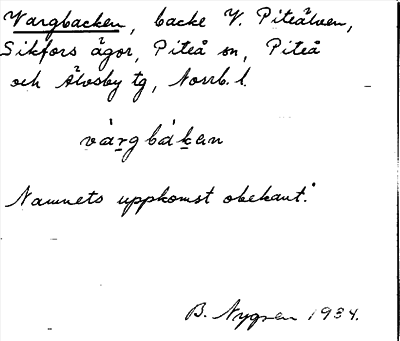 Vargbacken, backe V. Piteälven,
Sikfors ägor, Piteå sn, Piteå
och Älvsby tg, Norrb. l.
vàrgbákan
Namnets uppkomst obekant.
B. Nygren 1934.